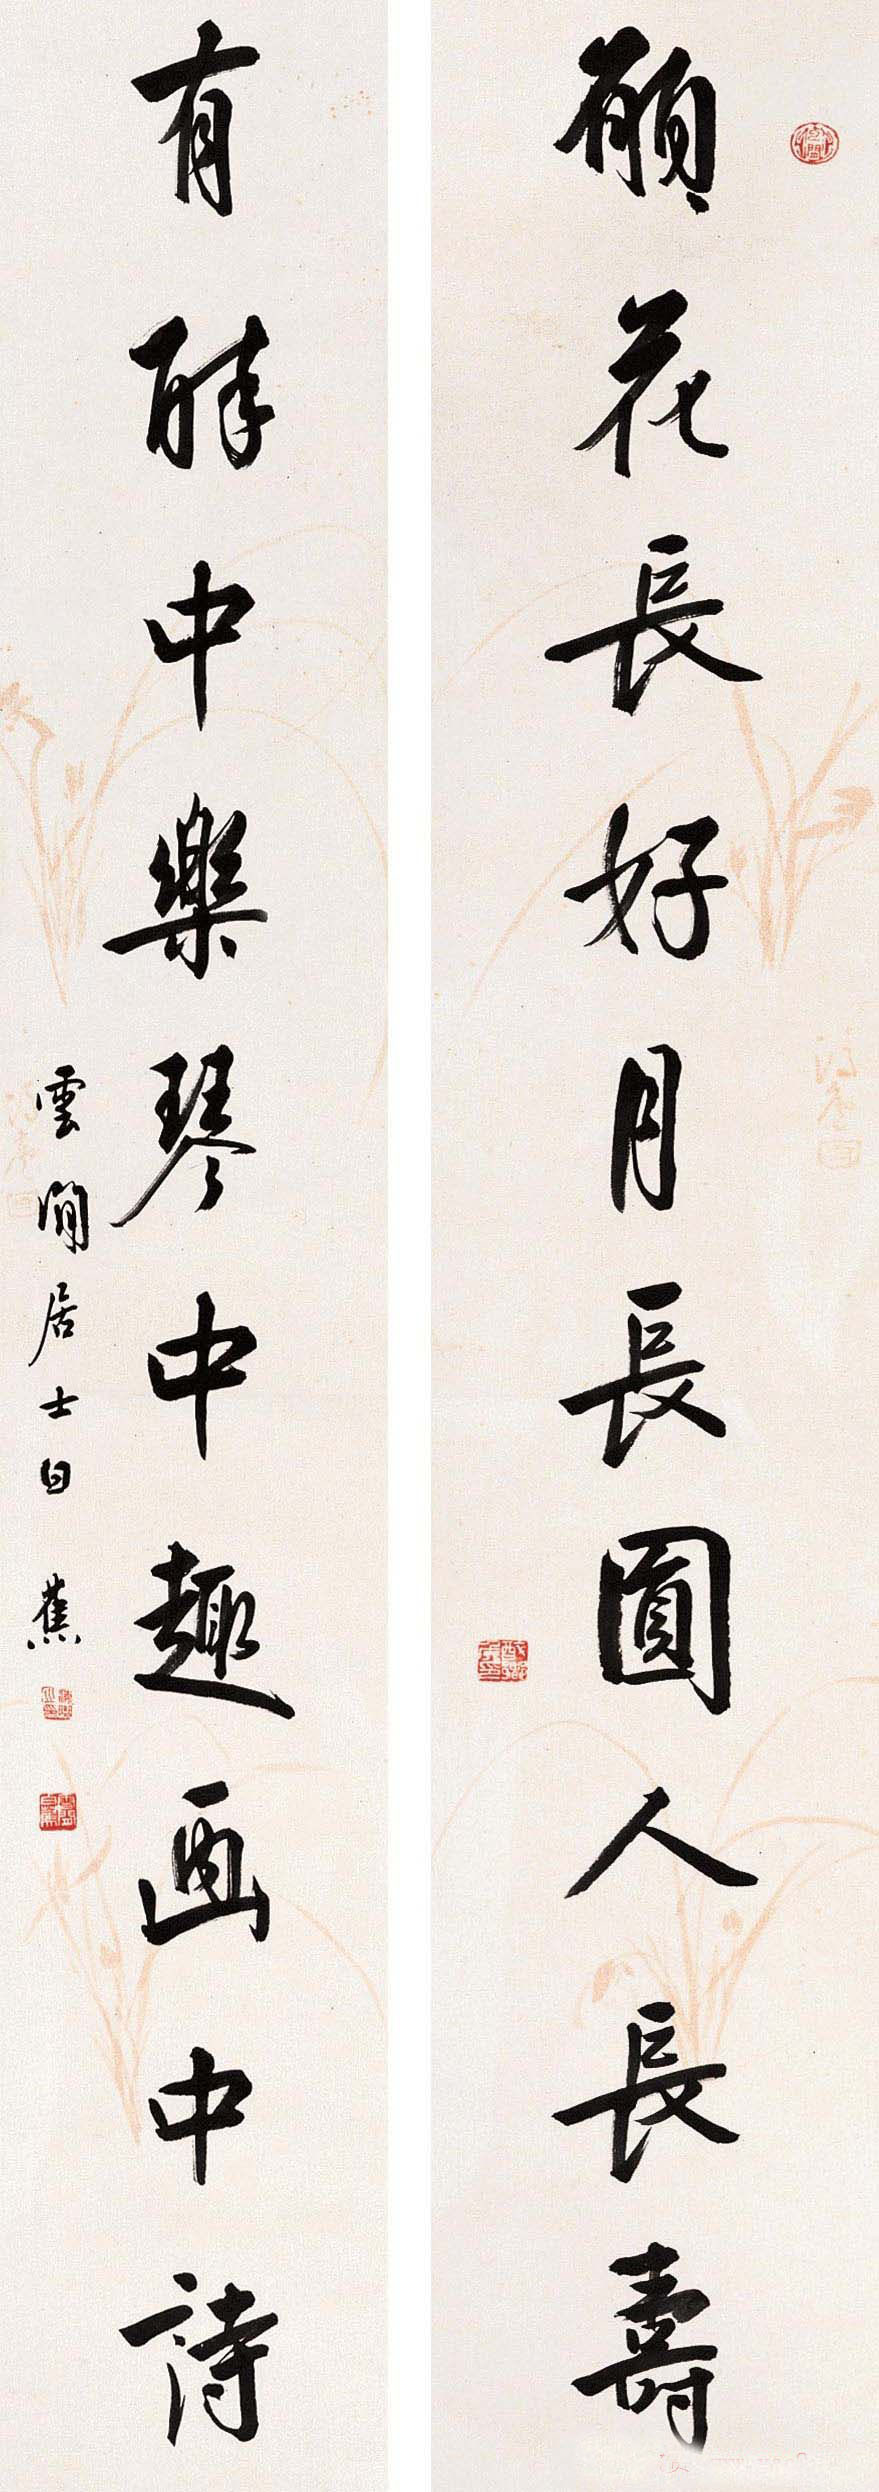 願花長好月長圓人長壽
有酔中樂琴中趣画中詩
雲間居士白蕉